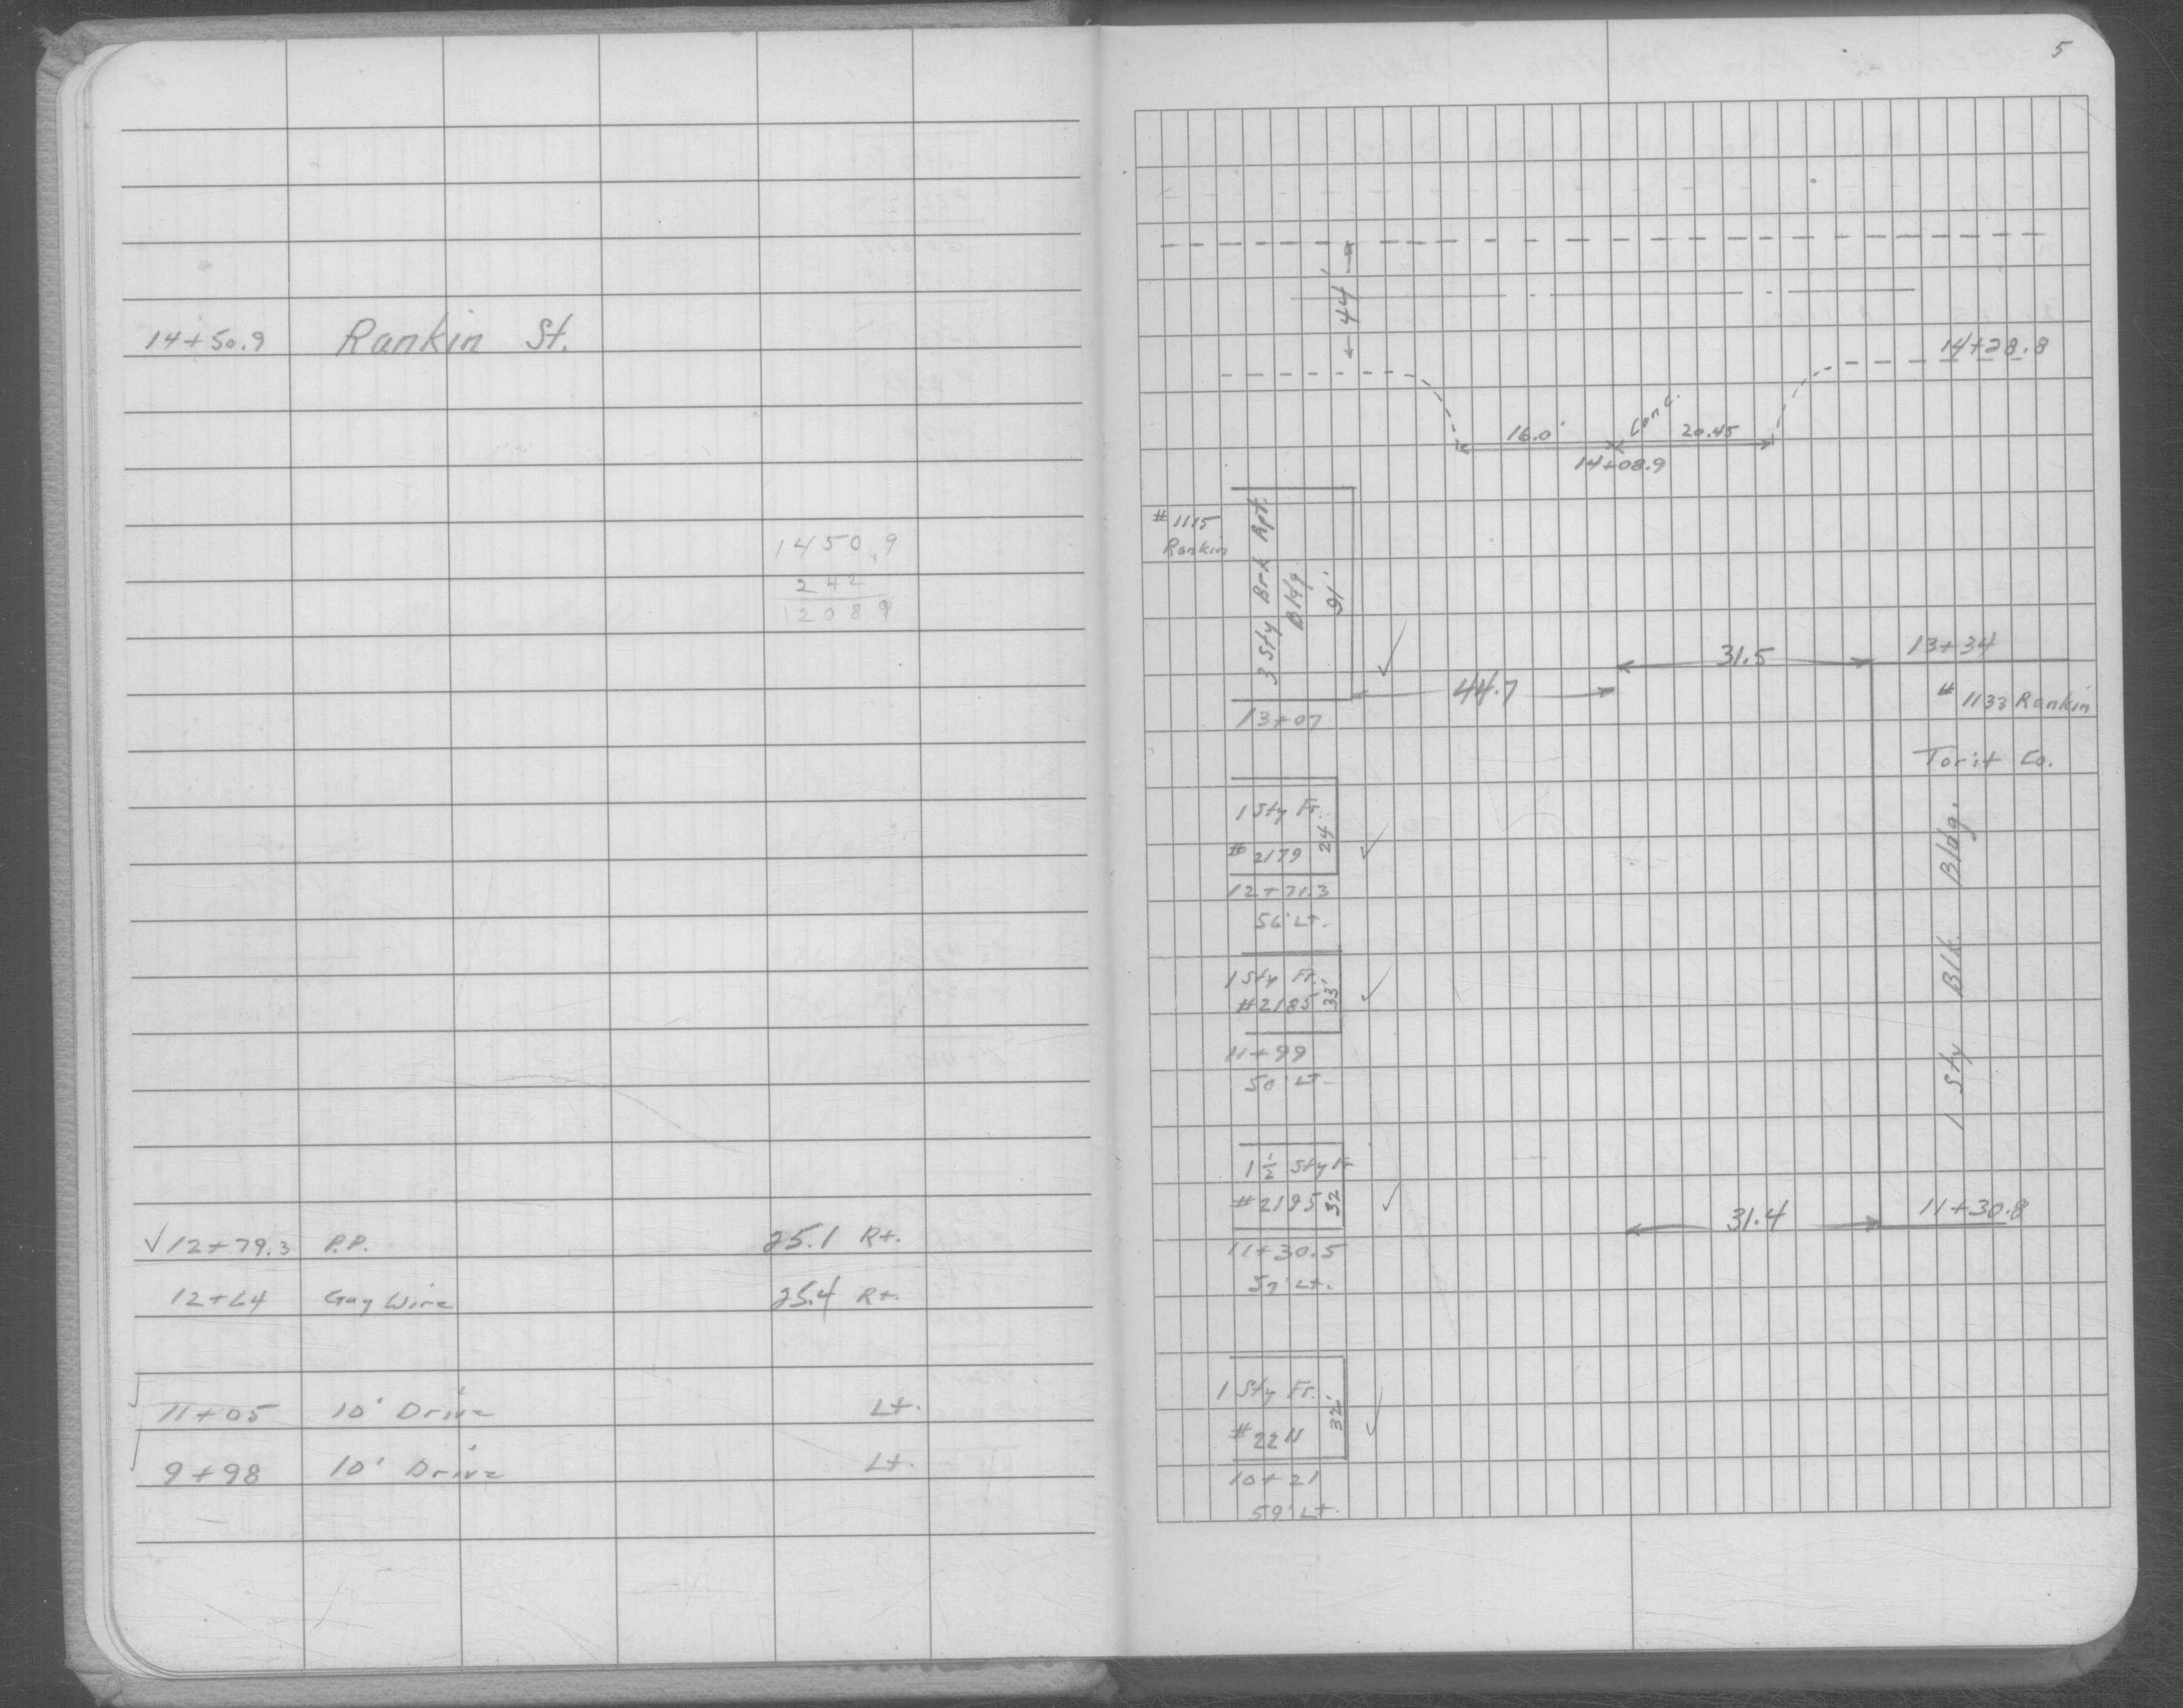 14+50.9 Rankin St.
1450.9
242
12089
✓ 12+79.3 P.P. 25.1 Rt.
12+64 Guy Wire 25.4 Rt.
11+05 10' Drive Lt.
9+98 10' Drive Lt.
5
44'
14+28.8
16.0' Conc. 20.45
14+08.9
#1115
Rankin
3 Sty Brk Apt.
Bldg.
91'
13+07
44.7
31.5
13+34
#1133 Rankin
Torit Co.
1 Sty Blk. Bldg.
1 Sty Fr.
#2179
24'
12+71.3
56' Lt.
1 Sty Fr.
#2185
33'
11+99
50' Lt.
1 1/2 Sty Fr
#2195
32
11+30.5
57' Lt.
31.4
11+30.8
1 Sty Fr.
#2211
32'
10+21
59' Lt.